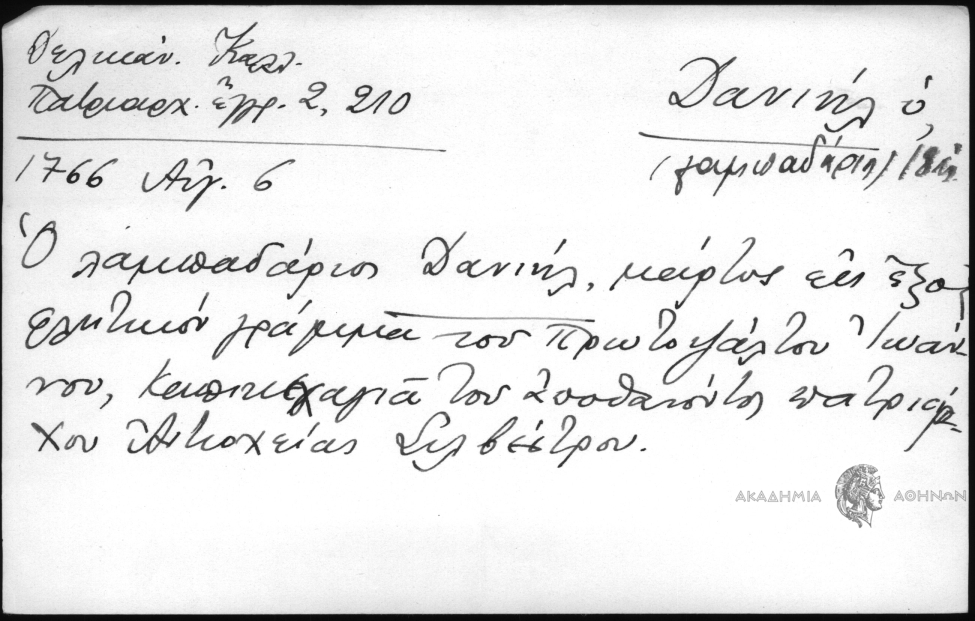 Δελικάν. Καλλ.
Πατριαρχ. ἔγγρ. 2, 210
Δανιήλ ὁ,
(λαμπαδάριος) 18
1766 Αὐγ. 6
Ὁ λαμπαδάριος Δανιήλ, μάρτυς εἰς ἐξο-
φλητικόν γράμμα τοῦ Πρωτοψάλτου Ἰωάν-
νου, καπικεχαγιᾶ τοῦ ἀποθανόντος πατριάρ-
χου Ἀντιοχείας Σιλβέστρου.
ΑΚΑΔΗΜΙΑ ΑΘΗΝΩΝ